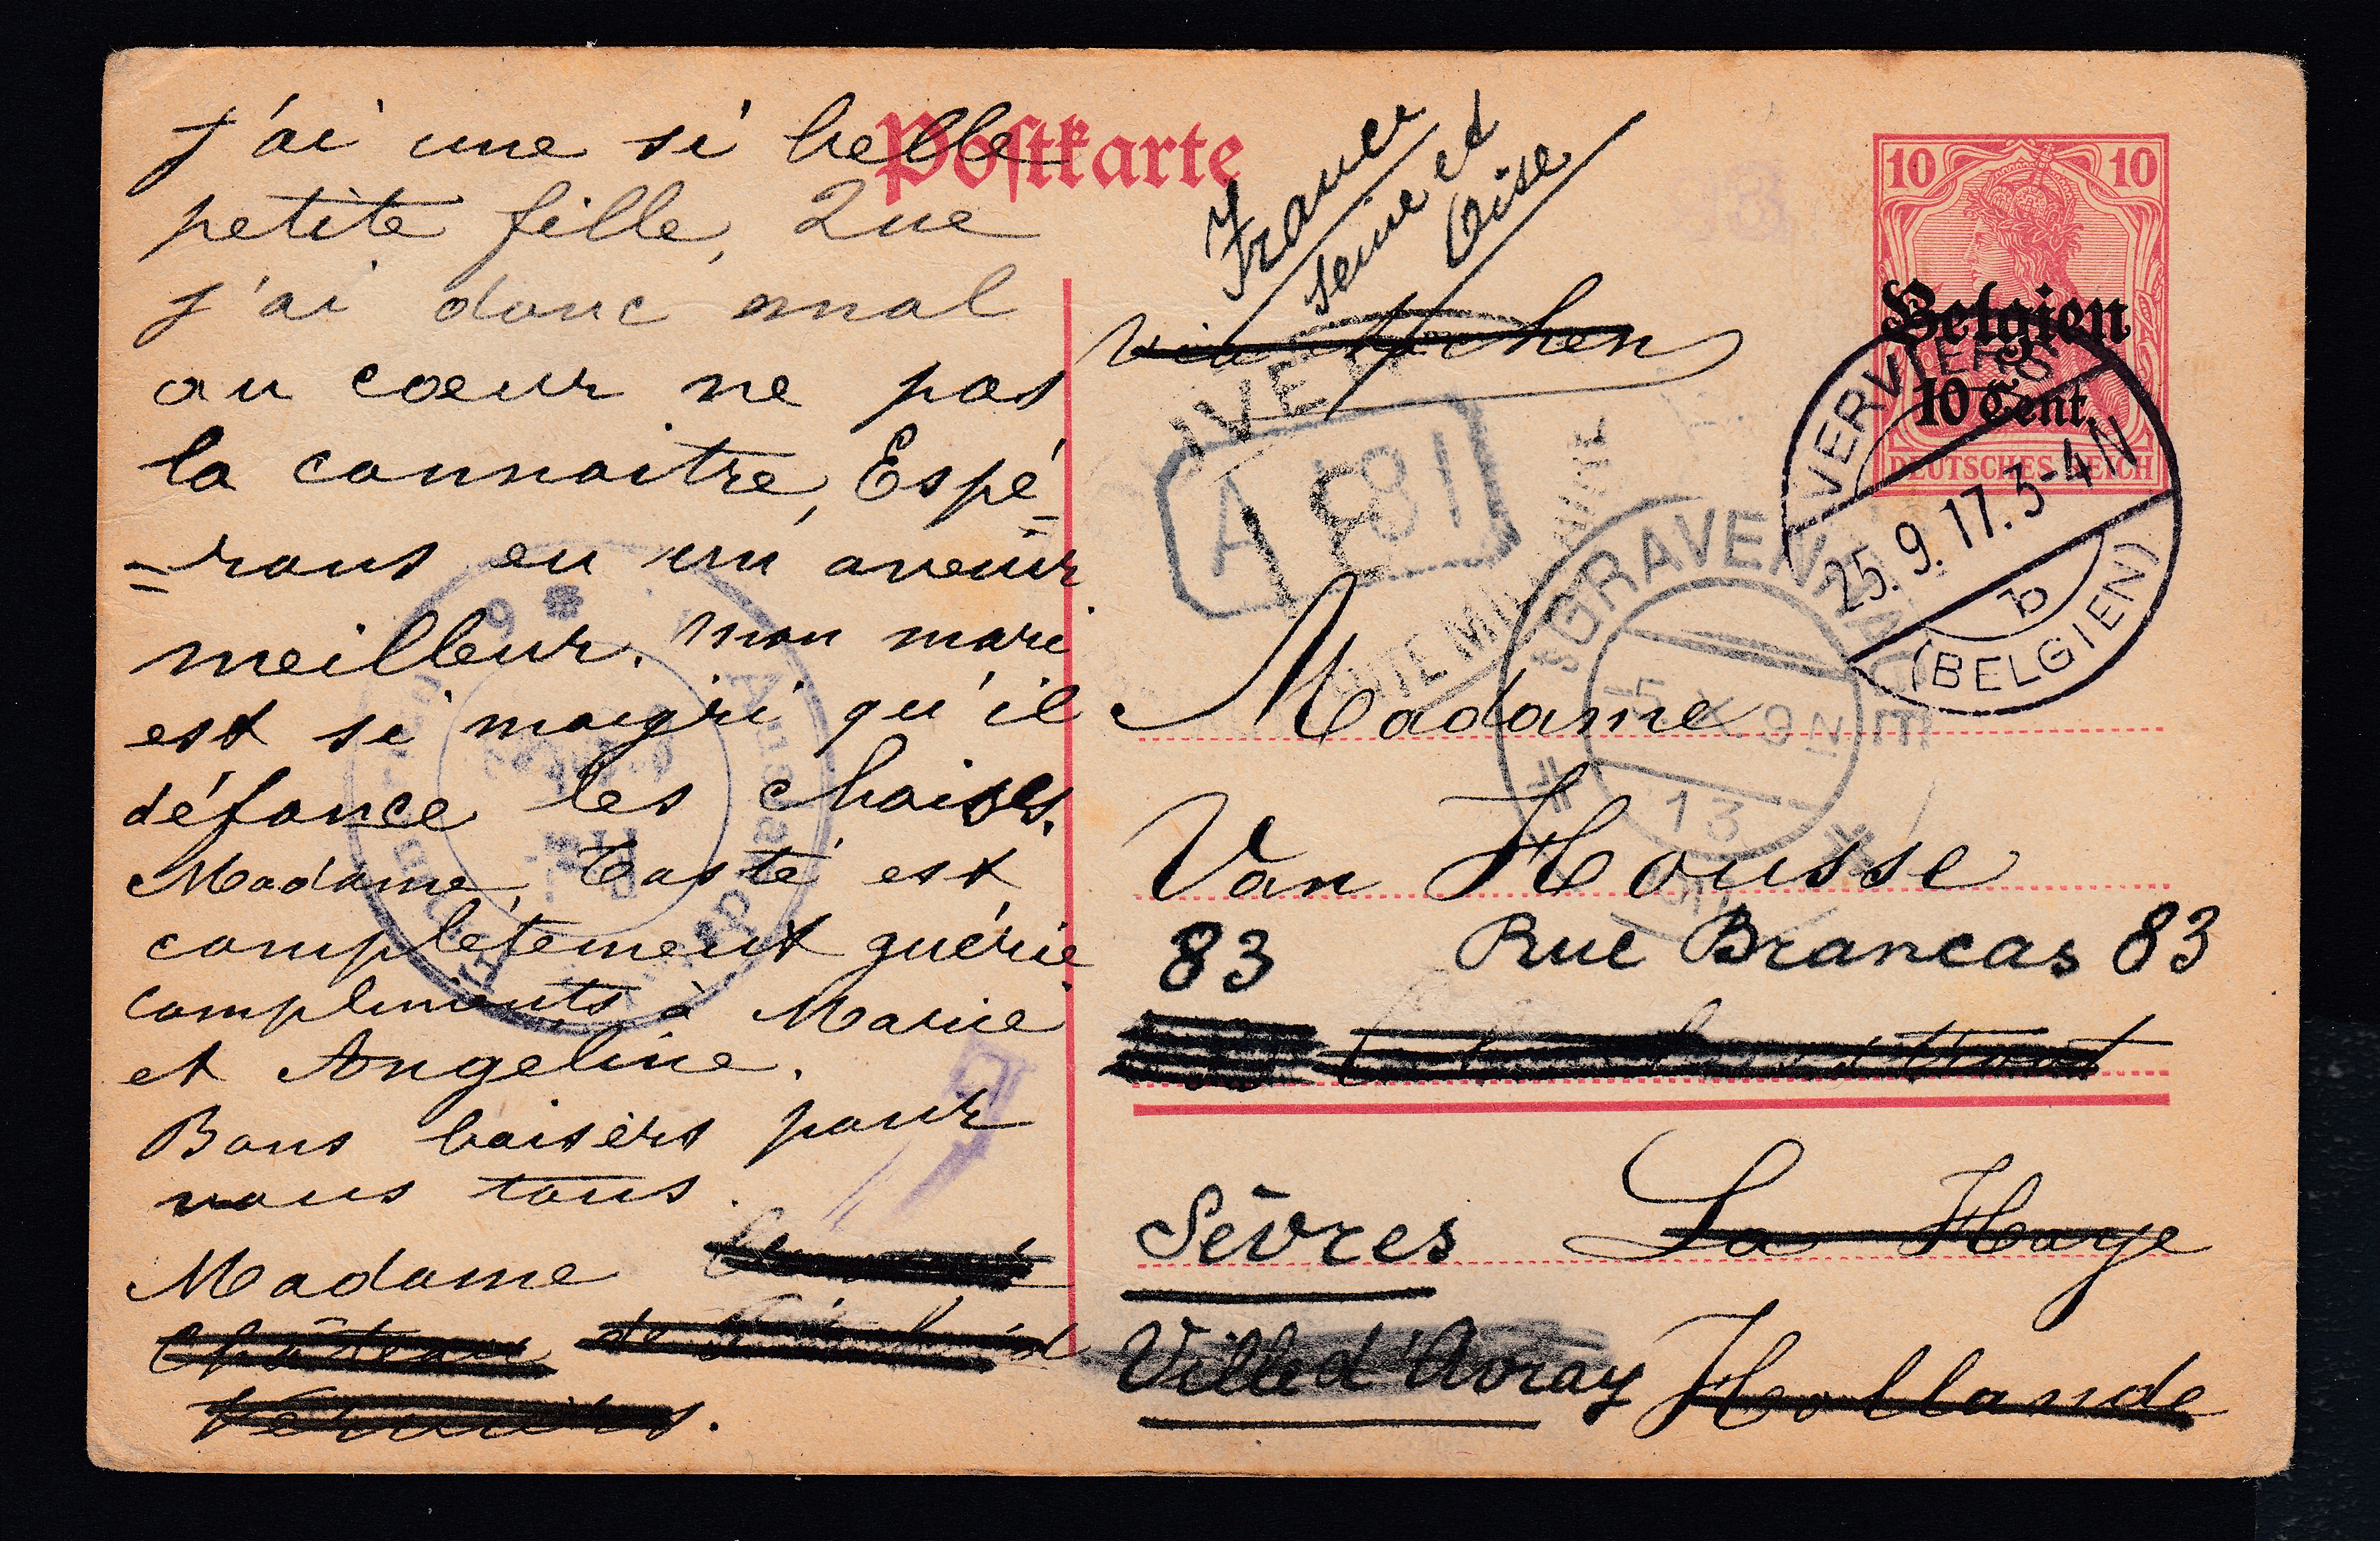 J'ai une si belle
petite fille, Que
j'ai donc mal
au coeur ne pas
la connaitre, Espé
=rons en un avenir
meilleur. Mon mari
est si maigri qu'il
défonce les chaises.
Madame Tasté est
complètement guérie
Compliments à Marie
et Angeline.
Bons baisers pour
vous tous.
Madame
Château de
Verviers.
Postkarte
France
Seine et
Oise
via Aachen
10 10
Belgien
10 Cent.
DEUTSCHES REICH
VERVIERS
25.9.17.3-4N
b
(BELGIEN)
A 81
'SGRAVENHAGE
5 X 9 N
13
Madame
Van Housse
83 Rue Brancas 83
Sèvres La Haye
Ville d'Avray Hollande